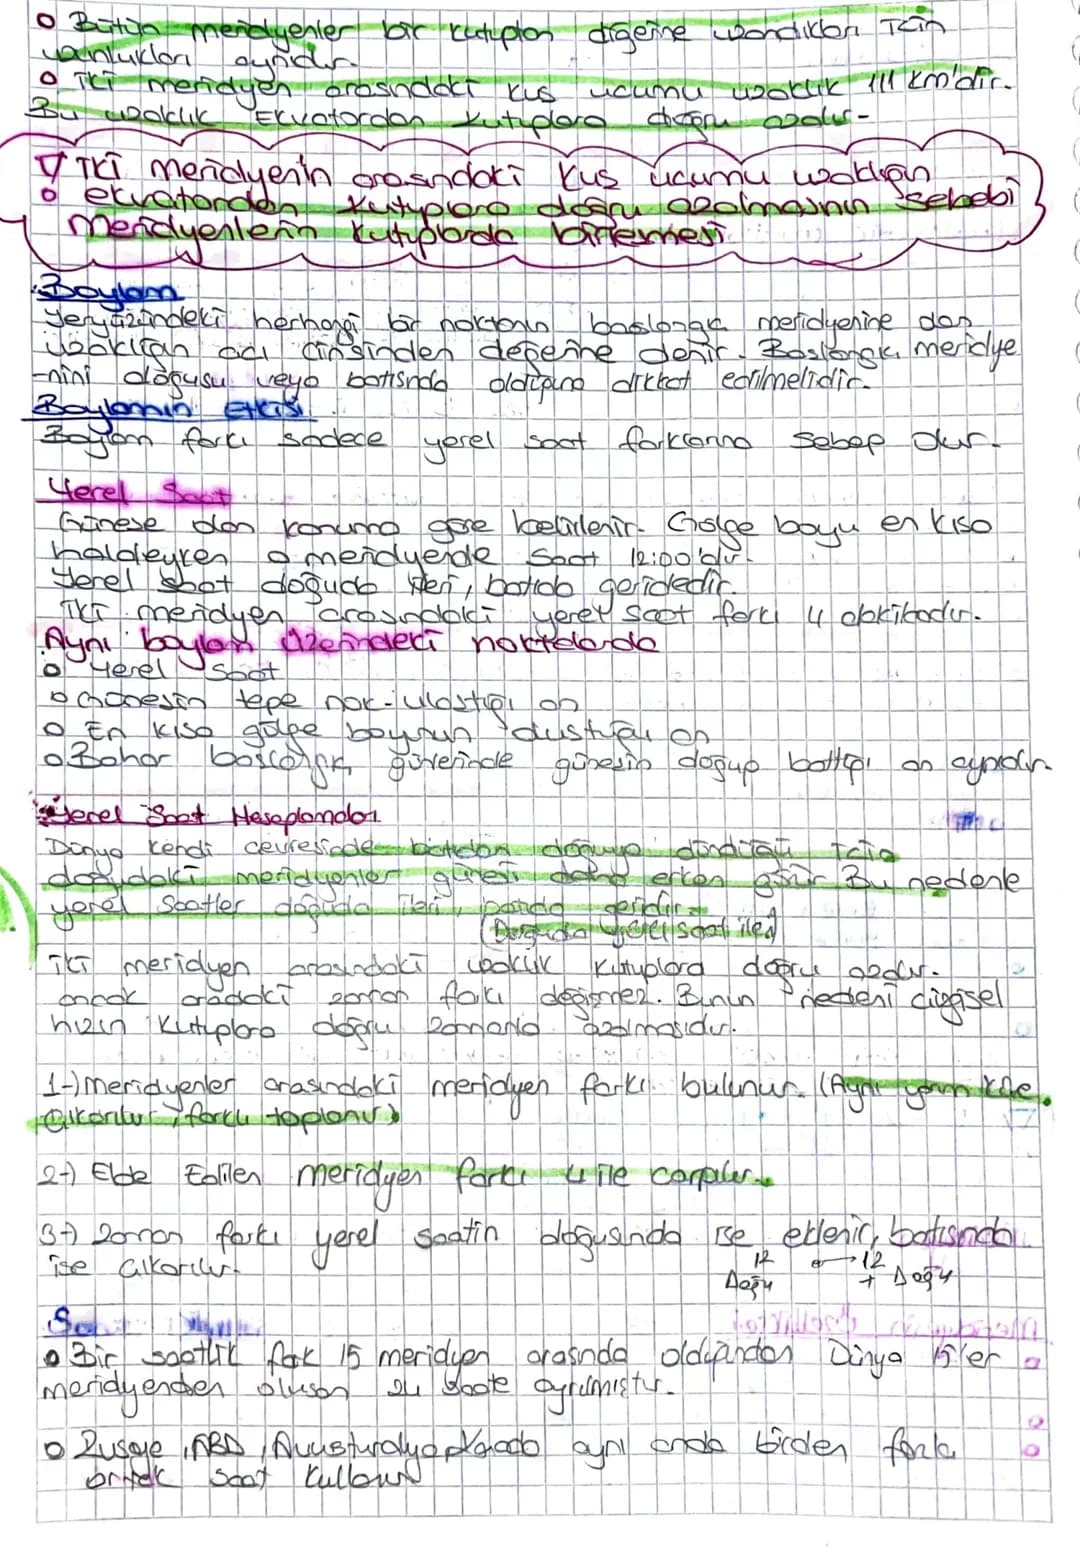 o Bütün meridyenler bir kutuptan diğerine uzandıkları için
uzunlukları aynıdır.
o İki meridyen arasındaki kuş uçumu uzaklık 111 km'dir.
Bu uzaklık Ekvatordan kutuplara doğru azalır.
İki meridyenin arasındaki kuş uçumu uzaklığın
ekvatordan kutuplara doğru azalmasının sebebi
meridyenlerin kutuplarda birleşmesi
Boylam
Yeryüzündeki herhangi bir noktanın başlangıç meridyenine olan
uzaklığın açı cinsinden değerine denir. Başlangıç meridye
-nini doğusu veya batısında olduğuna dikkat edilmelidir.
Boylamın Etkisi
Boylam farkı sadece yerel saat farklarına sebep olur.
Yerel Saat
Güneşe olan konuma göre belirlenir. Gölge boyu en kısa
haldeyken o meridyende saat 12:00'dır.
Yerel saat doğuda ileri, batıda geridedir.
İki meridyen arasındaki yerel saat farkı 4 dakikadır.
Aynı boylam üzerindeki noktalarda
o Yerel saat
o Güneşin tepe nok. ulaştığı an
o En kısa gölge boyunun düştüğü an
o Bahar başlangıç günlerinde güneşin doğup battığı an aynıdır
Yerel Saat Hesaplamaları
Dünya kendi çevresinde batıdan doğuya döndüğü için
doğudaki meridyenler güneşi daha erken görür Bu nedenle
yerel saatler doğuda ileri, batıda geridir.
(Doğuda yerel saat ileri)
İki meridyen arasındaki uzaklık kutuplara doğru azalır.
ancak aradaki zaman farkı değişmez. Bunun nedeni çizgisel
hızın kutuplara doğru zamanla azalmasıdır.
1-) Meridyenler arasındaki meridyen farkı bulunur. (Aynı yarım küre
çıkarılır, farklı toplanır)
2-) Elde Edilen meridyen farkı 4 ile çarpılır.
3-) Zaman farkı yerel saatin doğusunda ise eklenir, batısında
ise çıkarılır.
12 ⟷ 12
Doğu + Doğu
o Bir saatlik fark 15 meridyen arasında olduğundan Dünya 15'er
meridyenden oluşan 24 saate ayrılmıştır.
o Rusya, ABD, Avusturalya, Kanada aynı anda birden fazla
ortak saat kullanır